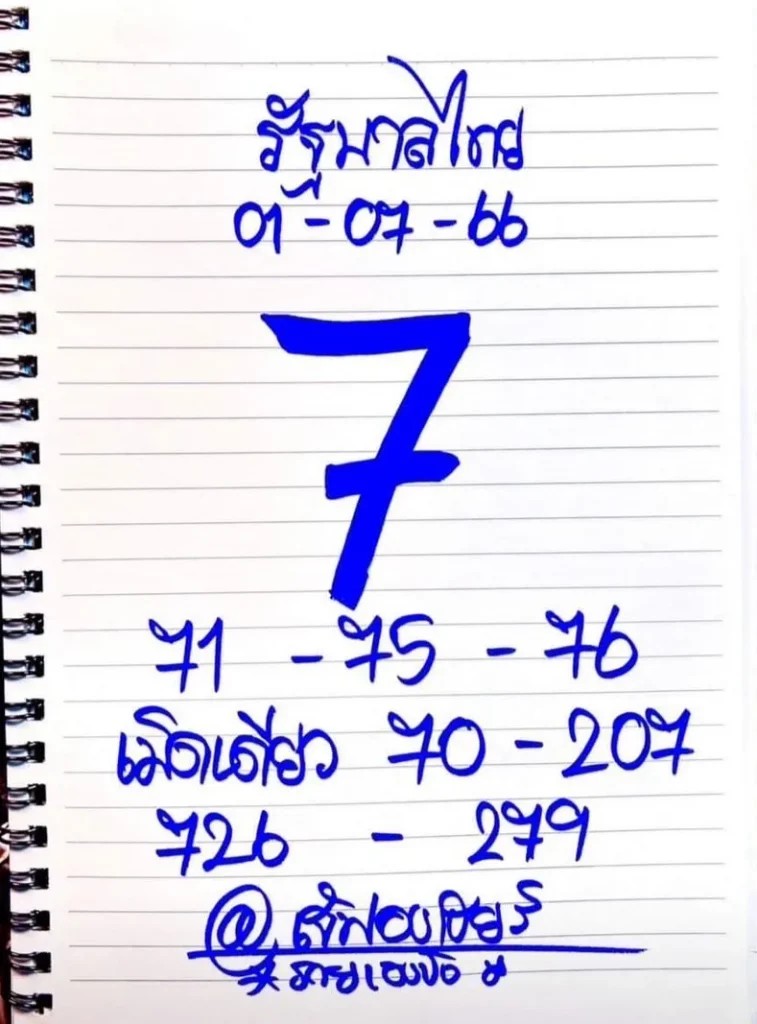 รัฐบาลไทย
01 - 07 - 66
7
71 - 75 - 76
เม็ดเดียว 70 - 207
726 - 279